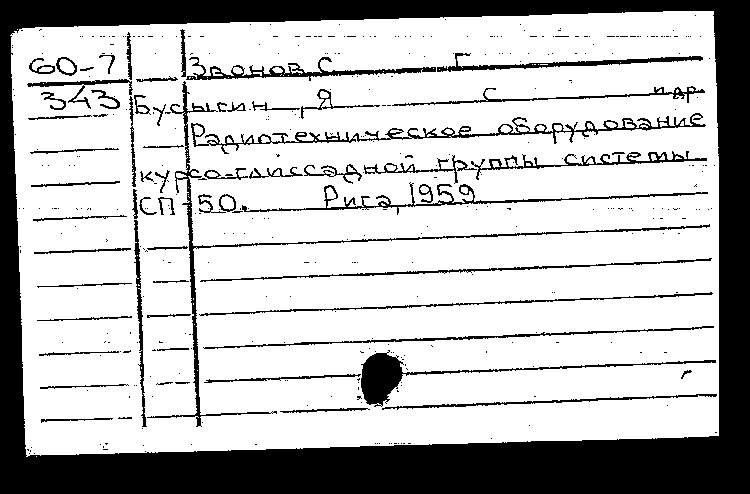 60-7 Звонов, С Г
343 Бусыгин, Я С и др
Радиотехническое оборудование
курсо-глиссадной группы системы
СП-50. Рига, 1959